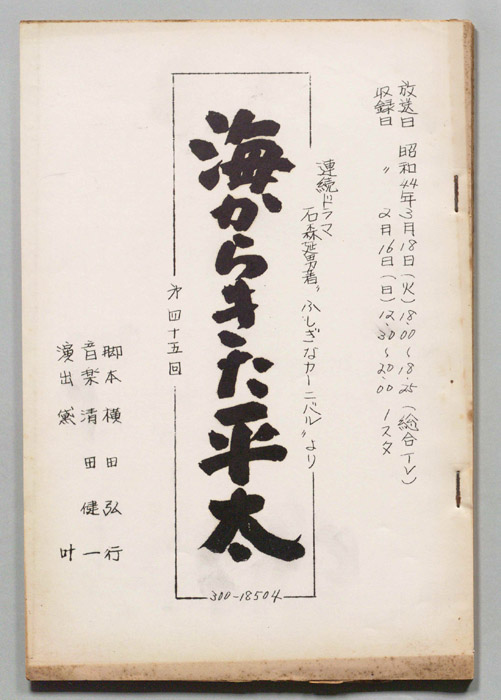 放送日 昭和44年3月18日(火)18.00〜18.25(総合TV)
収録日 〃 2月16日(日)12.30〜20.00 1スタ
連続ドラマ
石森延男著〃ふしぎなカーニバル〃より
海からきた平太
第四十五回
脚本 横田弘行
音楽 清田健一
演出 黛叶
300-18504